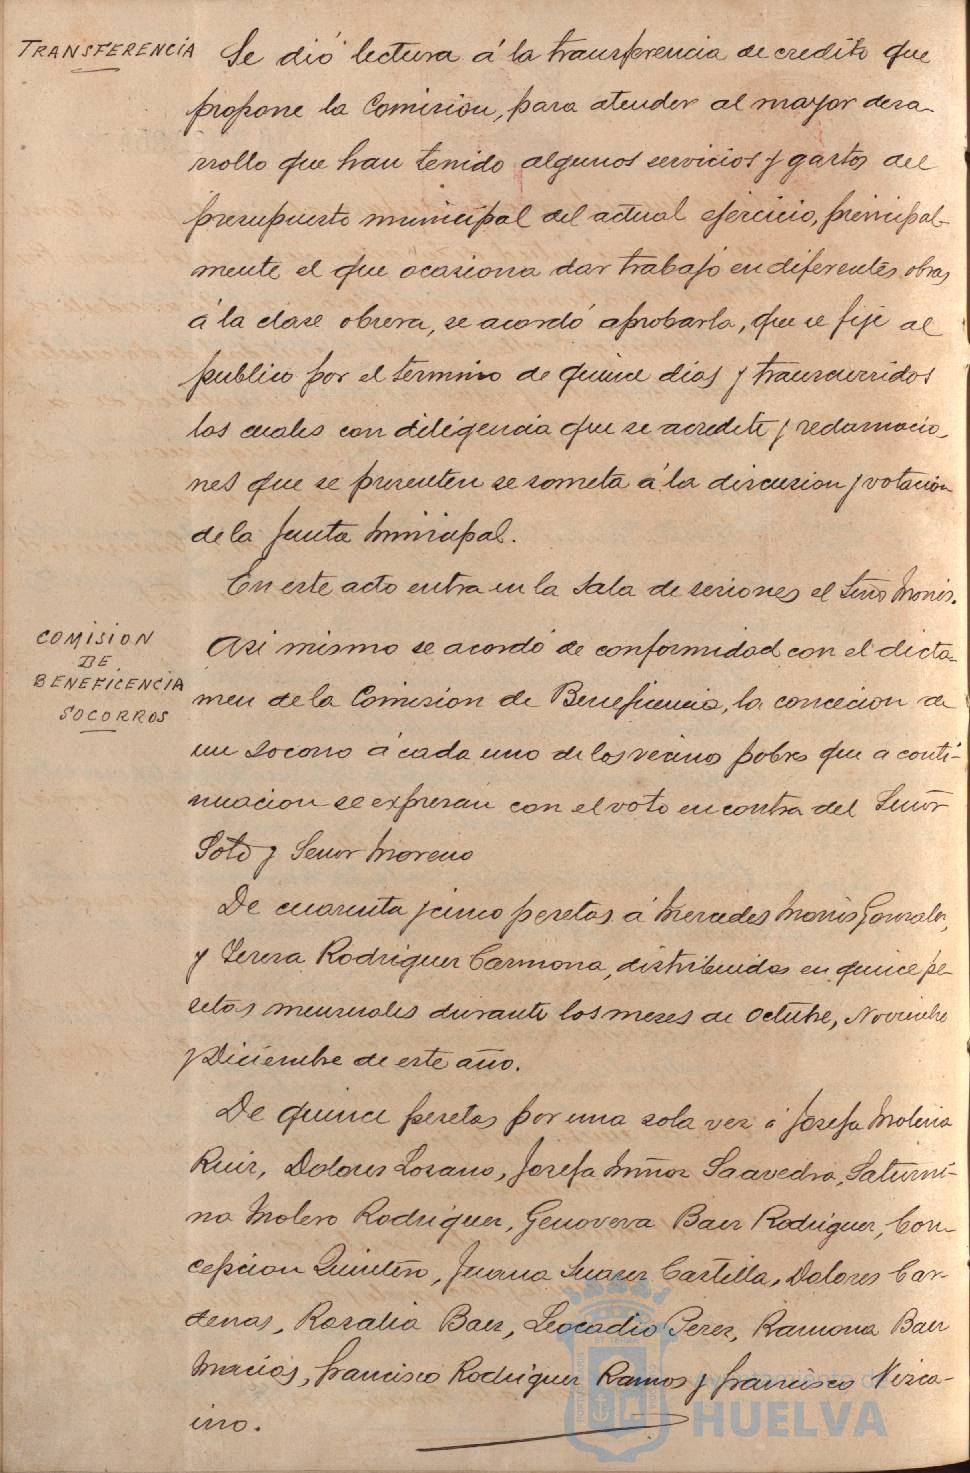 TRANSFERENCIA
Se dió lectura á la transferencia de credito que
propone la Comision, para atender al mayor desa-
rrollo que han tenido algunos servicios y gastos del
presupuesto municipal del actual ejercicio, principal-
mente el que ocasiona dar trabajo en diferentes obras
á la clase obrera, se acordó aprobarla, que se fije al
publico por el termino de quince dias y transcurridos
los cuales con diligencia que se acredite y reclamacio-
nes que se presenten se someta á la discusion y votacion
de la Junta Municipal.
En este acto entra en la Sala de sesiones el Señor Monis.
COMISION
DE
BENEFICENCIA
SOCORROS
Asi mismo se acordó de conformidad con el dicta-
men de la Comision de Beneficencia, la concecion de
un socorro á cada uno de los vecinos pobres que a conti-
nuacion se expresan con el voto en contra del Señor
Soto y Señor Moreno
De cuarenta y cinco pesetas á Mercedes Monis Gonzalez,
y Teresa Rodriguez Carmona, distribuidas en quince pe-
setas mensuales durante los meses de Octubre, Noviembre
y Diciembre de este año.
De quince pesetas por una sola vez á Josefa Molina
Ruiz, Dolores Lozano, Josefa Muñoz Saavedra, Saturni-
na Molero Rodriguez, Genoveva Baez Rodriguez, Con-
cepcion Quintero, Juana Suarez Castilla, Dolores Car-
denas, Rosalia Baez, Leocadio Perez, Ramona Baez
Macias, Francisco Rodriguez Ramos y Francisco Vizca-
ino.
HUELVA